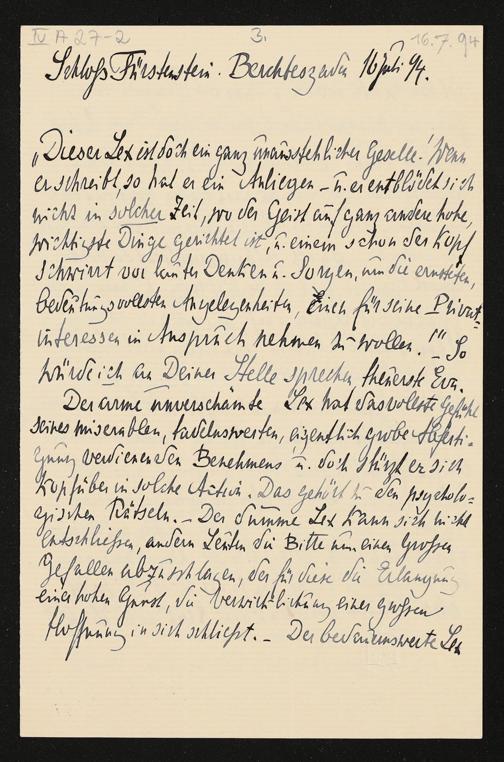 IV A 27-2 3. 16.7.94
Schloß Fürstenstein. Berchtesgaden 16 Juli 94.
„Dieser Lex ist doch ein ganz unausstehlicher Geselle! Wenn
er schreibt, so hat er ein Anliegen – u. er entblödet sich
nicht in solcher Zeit, wo der Geist auf ganz andere hohe,
wichtigste Dinge gerichtet ist, u. einem schon der Kopf
schwirrt vor lauter Denken u. Sorgen, um die ernstesten,
bedeutungsvollsten Angelegenheiten, Einen für seine Privat-
interessen in Anspruch nehmen zu wollen.!" So
würde ich an Deiner Stelle sprechen, theuerste Eva.
Der arme unverschämte Lex hat das vollste Gefühl
seines miserablen, tadelnswerten, eigentlich grobe Abferti-
gung verdienenden Benehmens u. doch stürzt er sich
kopfüber in solche Action. Das gehört zu den psycholo-
gischen Rätseln. – Der dumme Lex kann sich nicht
entschließen, andern Leuten die Bitte um einen großen
Gefallen abzuschlagen, der für diese die Erlangung
einer hohen Gunst, die Verwirklichung einer großen
Hoffnung in sich schließt. – Der bedauernswerte Lex